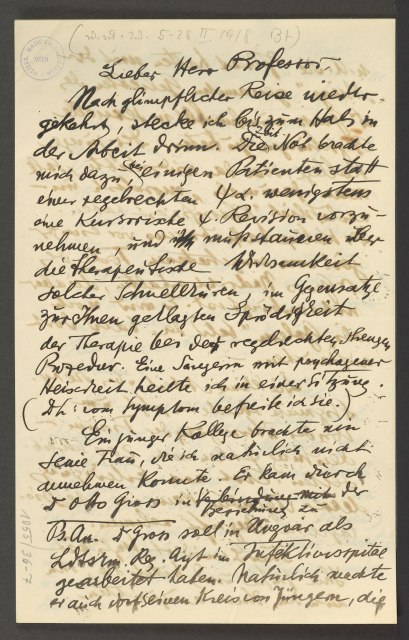 28 II 1918
Lieber Herr Professor
Nach glimpflicher Reise wieder-
gekehrt, stecke ich bis zum Hals in
der Arbeit drinn. Die Not brachte
mich dazu bei einigen Patienten statt
einer regelrechten ψα. wenigstens
eine kursorische ψ. Revision vorzu-
nehmen, und muß staunen über
die therapeutische Wirksamkeit
solcher Schnellkuren, im Gegensatze
zur Ihnen geklagten Sprödigkeit
der Therapie bei der regelrechten, strengen
Prozedur. Eine Sängerin mit psychogener
Heiserkeit heilte ich in einer Sitzung.
(Dh: vom Symptom befreite ich sie.)
Ein junger Kollege brachte mir
seine Frau, die ich natürlich nicht
annehmen konnte. Er kam durch
Dr Otto Gross in Verbindung mit der
Beziehung zu
Ps.An. Dr Gross soll in Ungvár als
Ldstrm. Reg. Arzt im Infektionsspital
gearbeitet haben. Natürlich machte
er auch dort einen Kreis von Jüngern, die